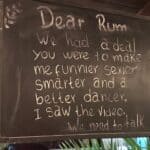 Dear Rum
We had a deal
you were to make
me funnier, sexier
smarter and a
better dancer.
I saw the video.
We need to talk